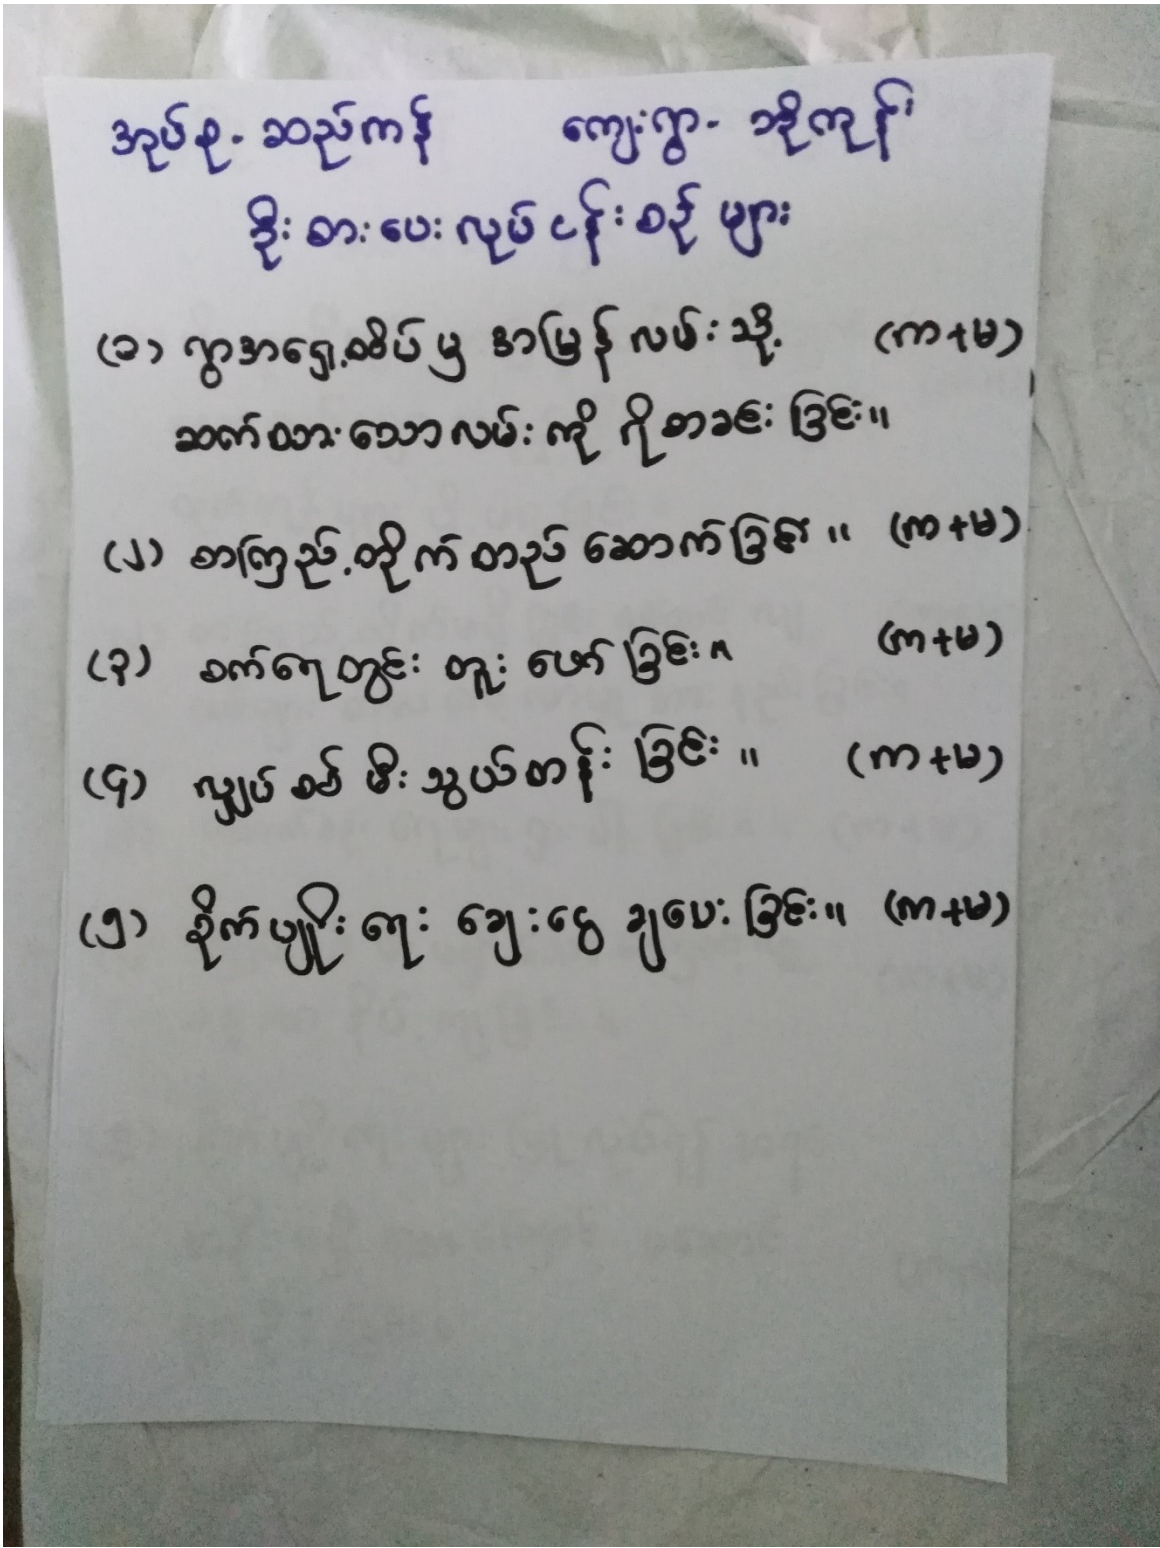 အုပ်စု - ဆည်ကန် ကျေးရွာ - ဘိုကုန်း
ဦးစားပေးလုပ်ငန်းစဉ်များ
(၁) ရွာအရှေ့ထိပ်မှ အမြန်လမ်းသို့ (က+မ)
ဆက်ထားသောလမ်းကို ဂိုတခင်းခြင်း။
(၂) စာကြည့်တိုက်တည်ဆောက်ခြင်း။ (က+မ)
(၃) စက်ရေတွင်း တူးဖော်ခြင်း။ (က+မ)
(၄) လျှပ်စစ်မီးသွယ်တန်းခြင်း။ (က+မ)
(၅) စိုက်ပျိုးရေး ချေးငွေ ချပေးခြင်း။ (က+မ)